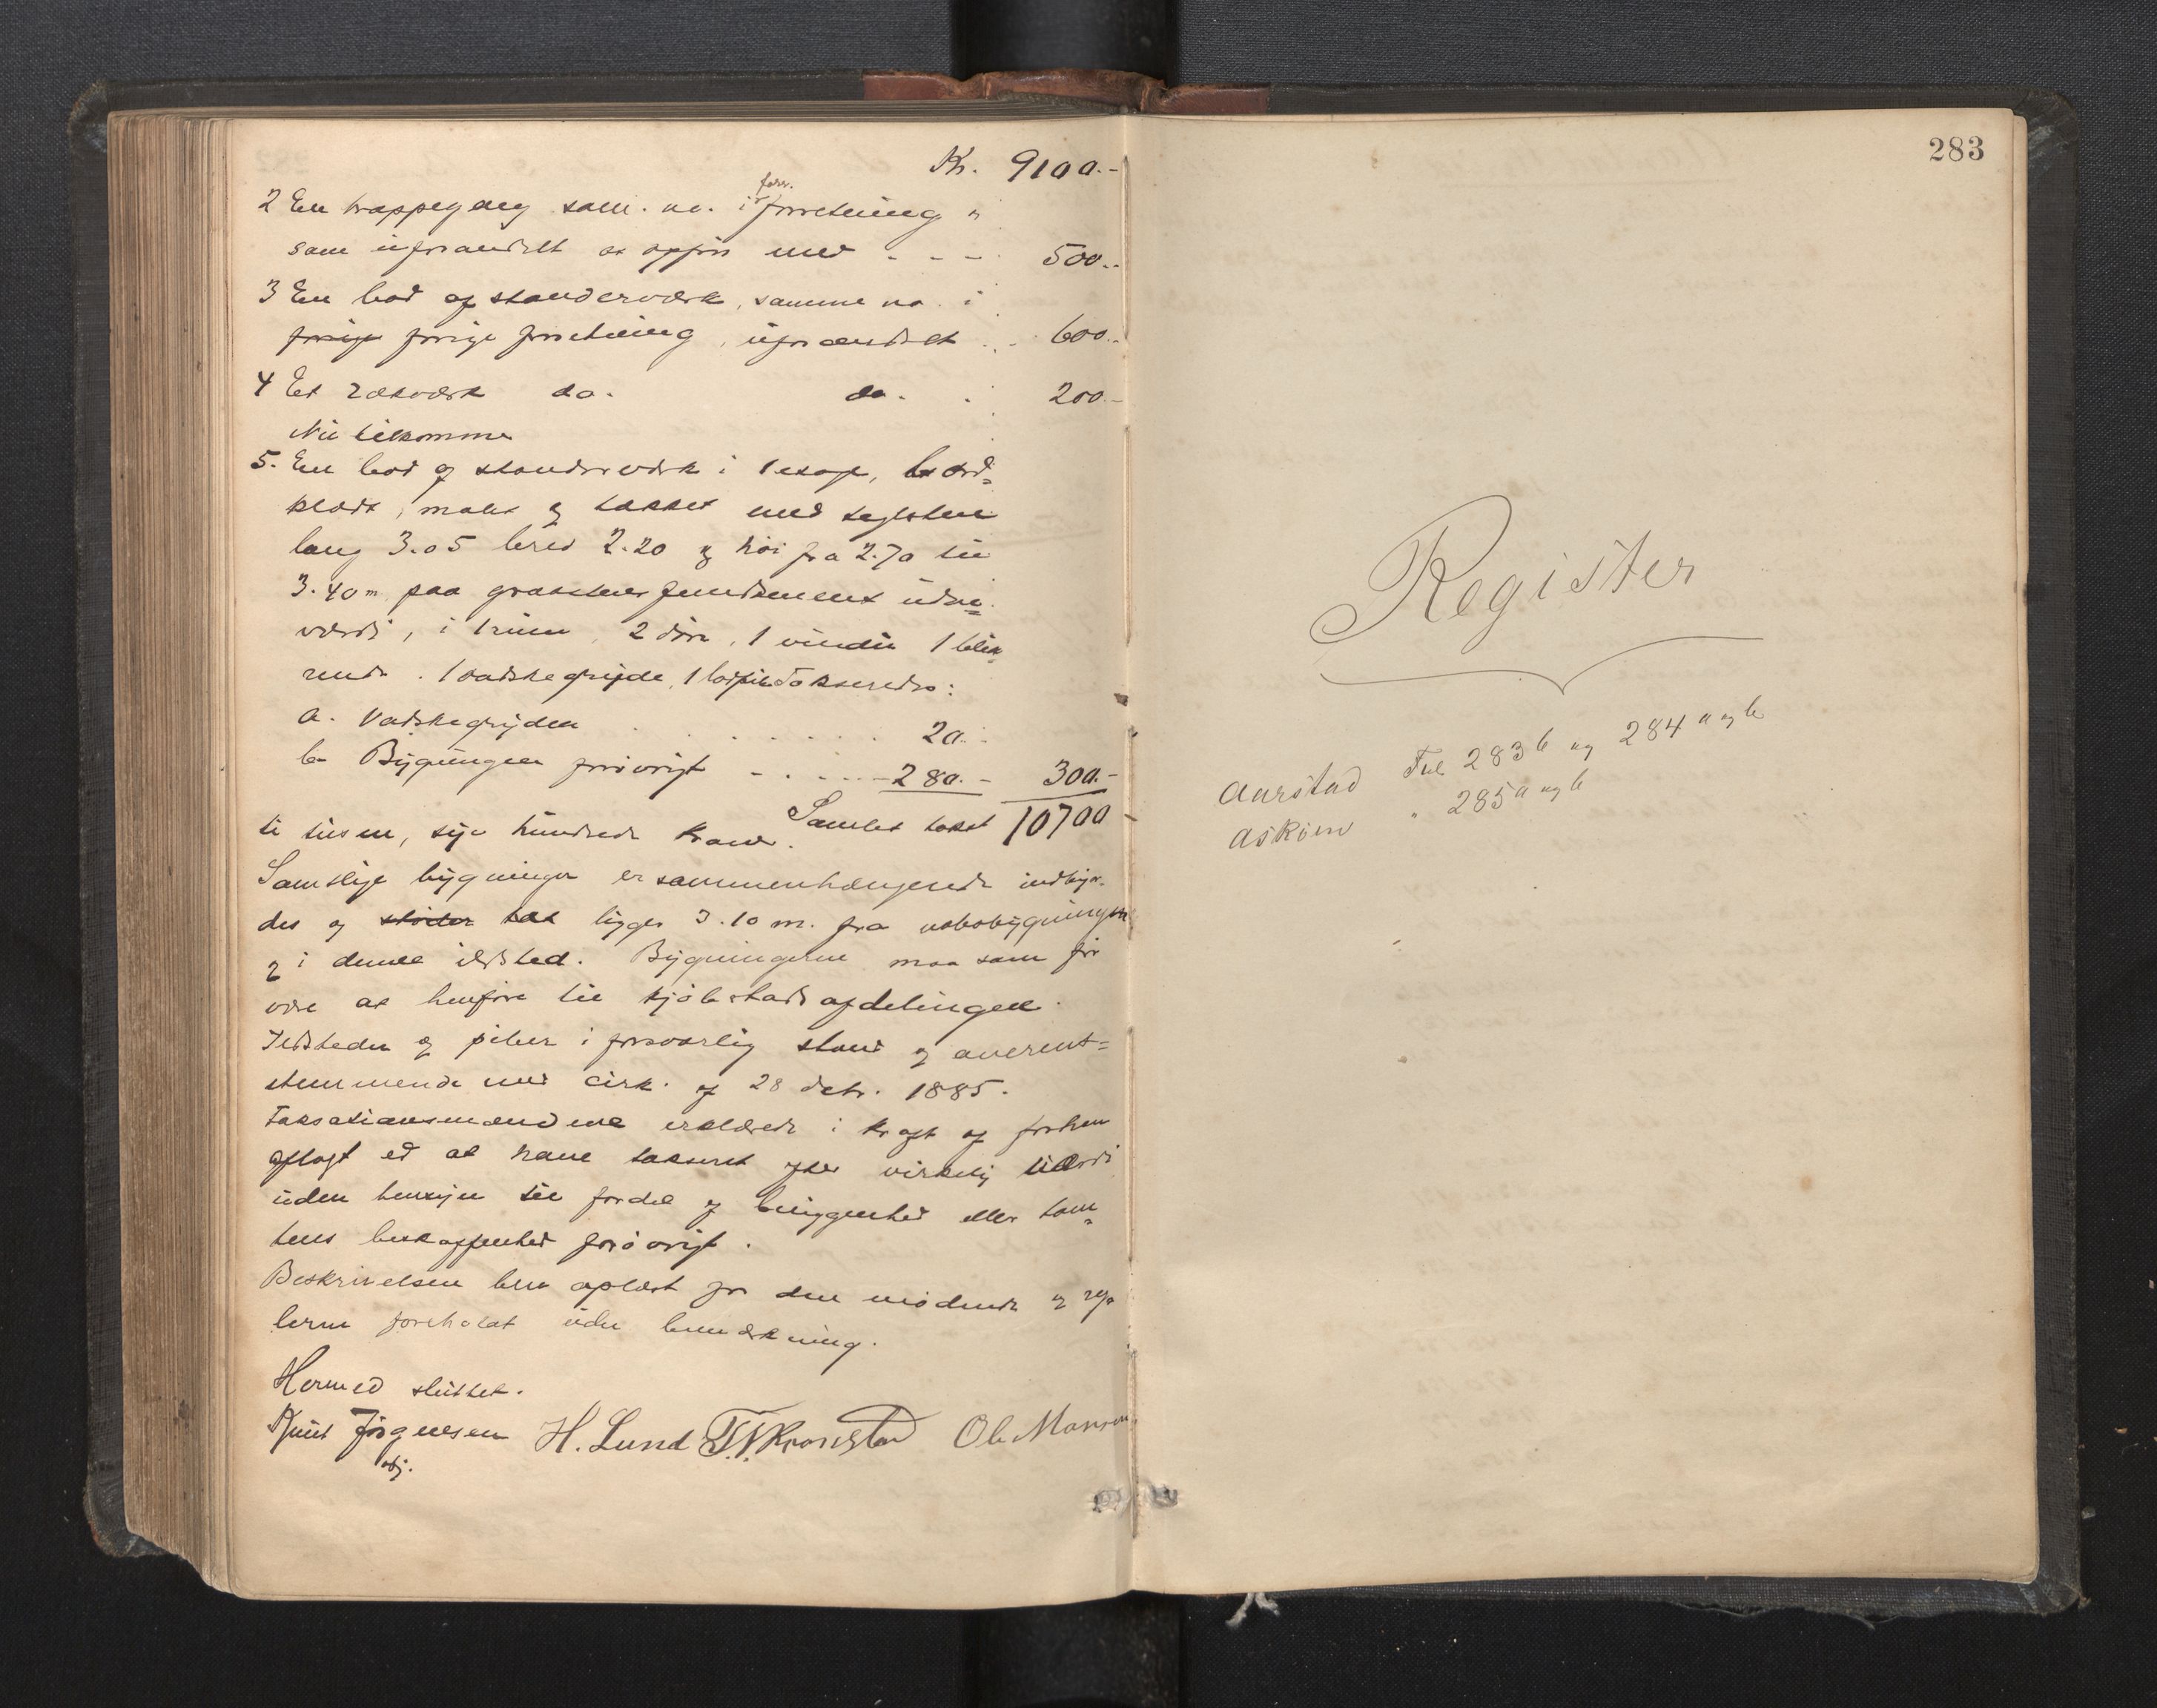 Kr. 9100.-
2 En trappegang sam. no. i forr. forretning
som uforandret at opføre med - - - 500.-
3 En bod af standerværk, samme no. i
forrige forrige forretning, uforandret . . 600.-
4 Et rækværk do. do. . 200.-
Nu tilkommer
5. En bod af standerværk i 1 etage, bord=
klædt, malet og tækket med teglsten
lang 3.05 bred 2.20 og høi fra 2.70 til
3.40 m paa graastens fundament
værdi, i 1 rum, 2 døre, 1 vindu 1 blik
rende. 1 vadskegryde, 1 Takseredes:
a. Vadskegryden . . . . . . . 20.-
b Bygningen forøvrigt - . . . - - 280.- 300.-
Samlet takst 10700 -
ti tusen, syv hundrede kroner.
Samtlige bygninger er sammenhængende indbyr-
des og støder tæt ligger 3.10 m. fra nabobygningen
og i denne ildsted. Bygningerne maa som før
være at henføre til kjøbstadsafdelingen.
Ildsteder og piber i forsvarlig stand og overens=
stemmende med cirk. af 28 1885.
Taksationsmændene erklærede i kraft af forhen
aflagt ed at have takseret efter virkelig værdi
uden hensyn til fordel af beliggenhed eller tom=
tens beskaffenhed forøvrigt.
Beskrivelsen blev oplæst for den mødende og reg
lerne foreholdt uden bemærkning.
Hermed sluttet.
Knut Jørgensen H. Lund T. N. Kronstad Ole Monsen
283
Register
Aarstad Fol. 283 b og 284 a og b
Askøen " 285 a og b